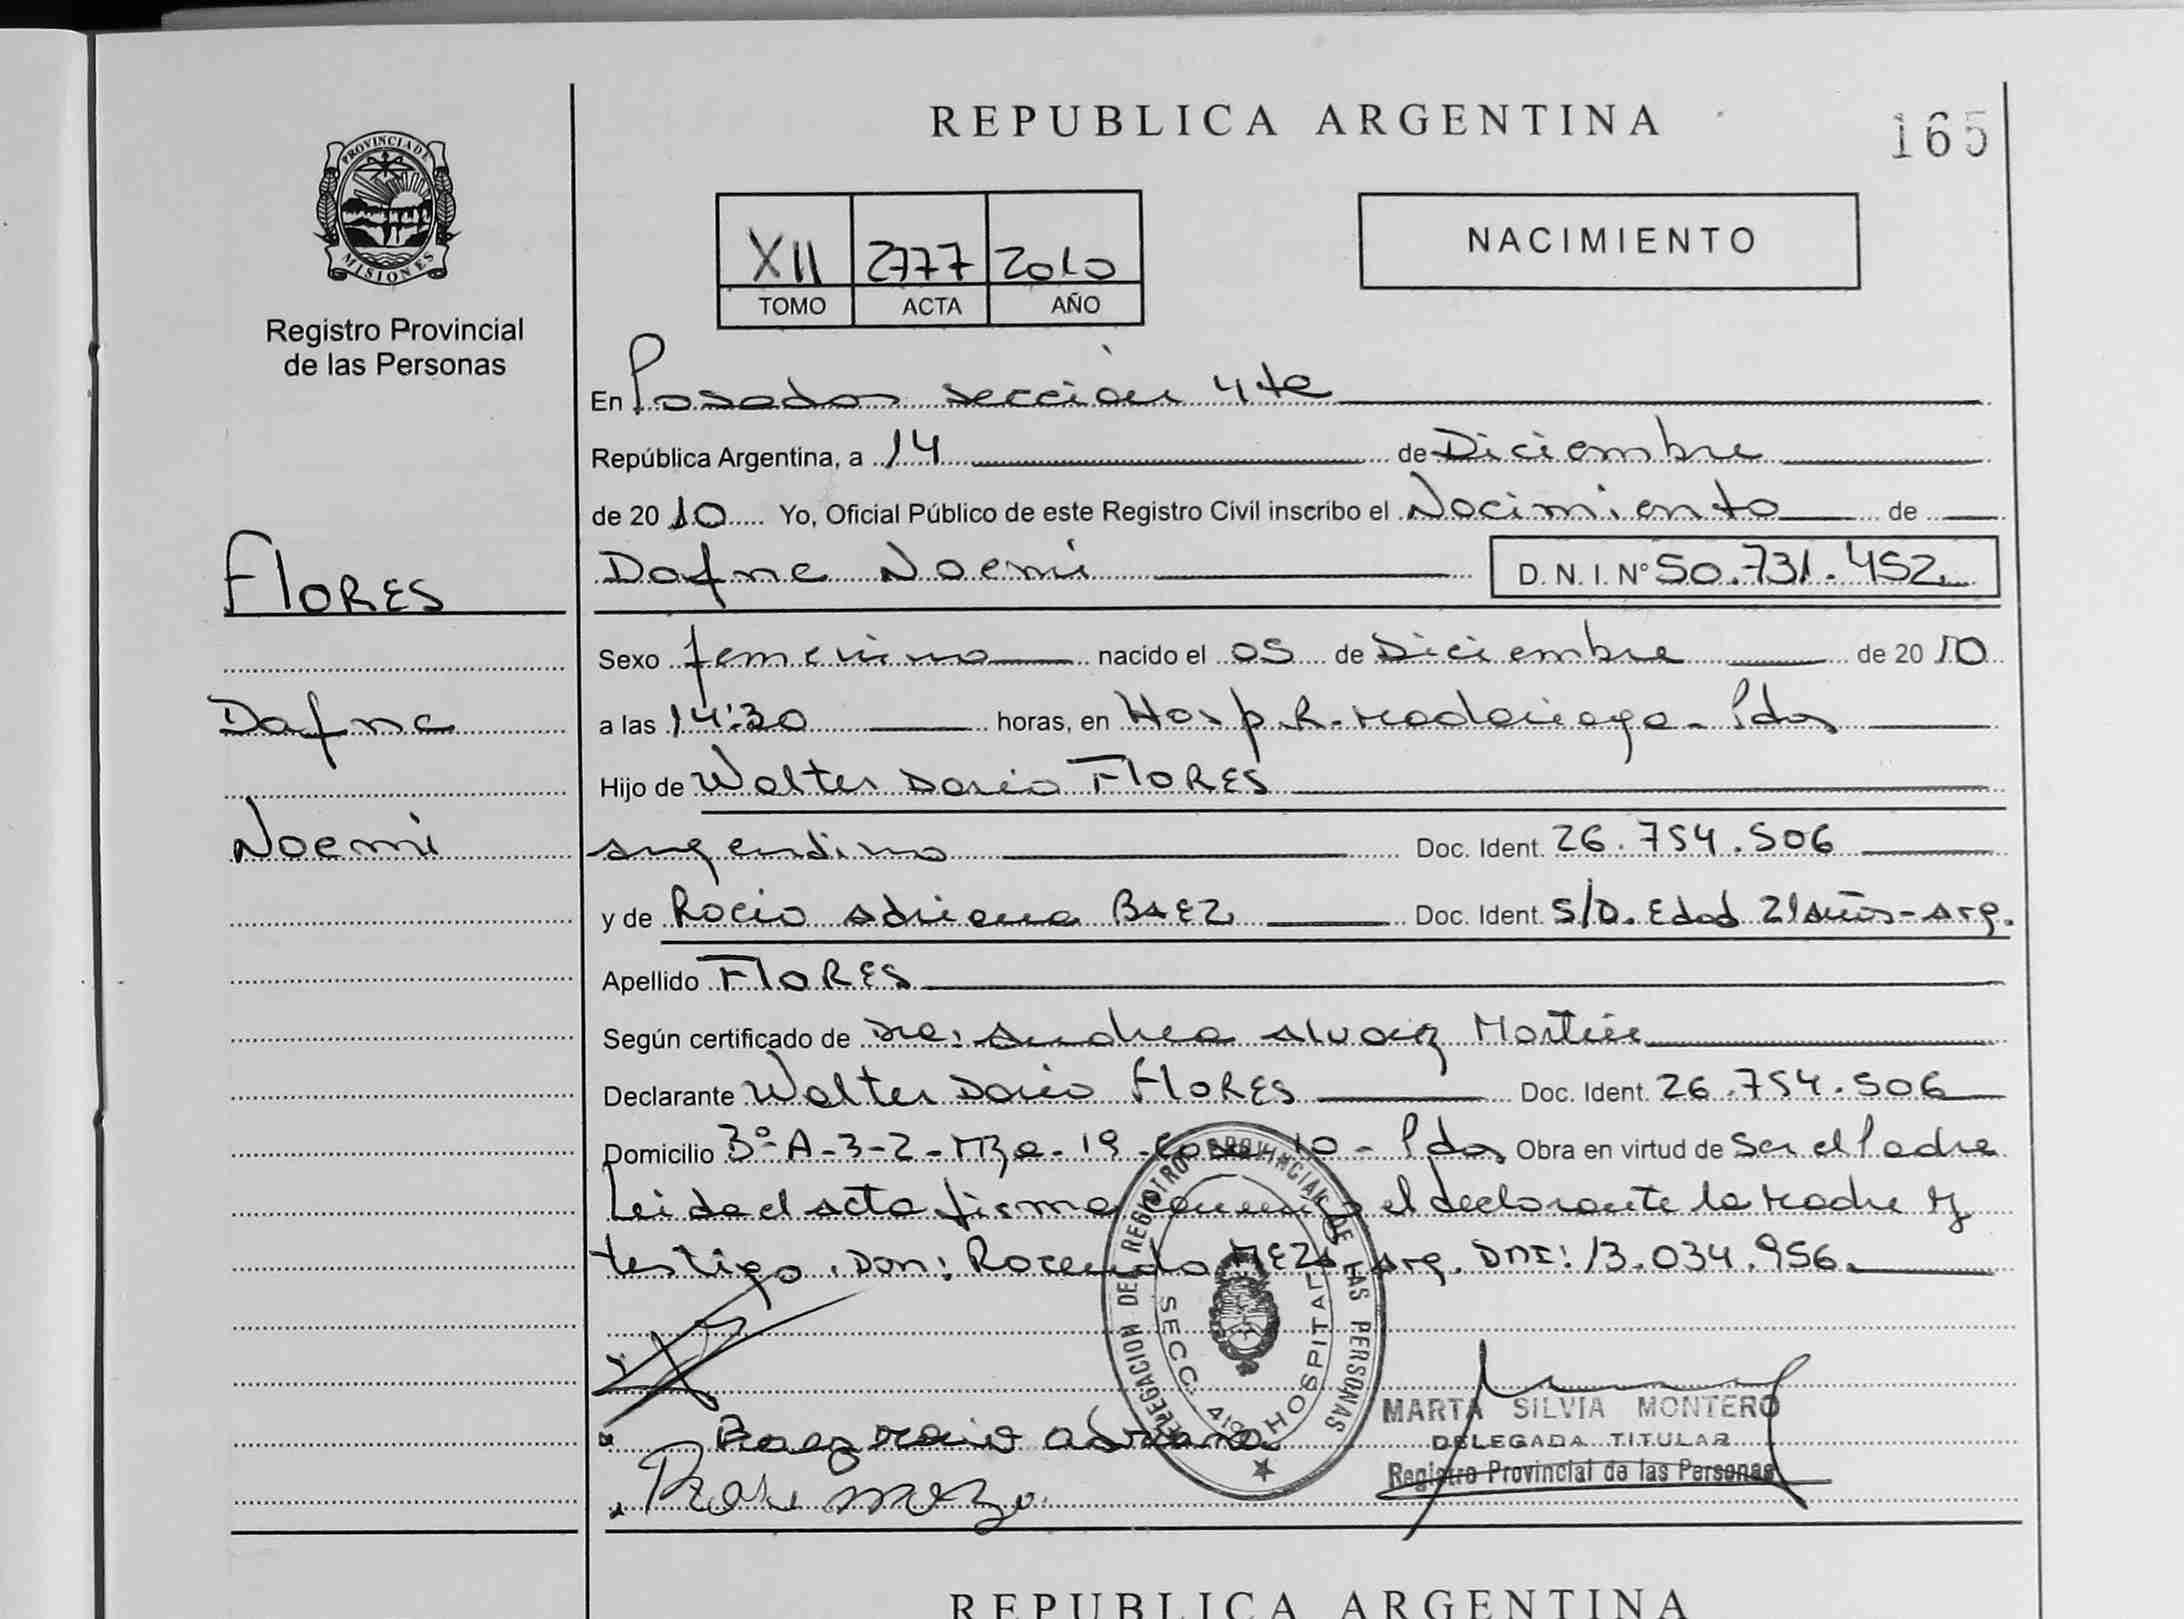 REPUBLICA ARGENTINA
165
PROVINCIA DE
MISIONES
Registro Provincial
de las Personas
XII 2777 2010
TOMO ACTA AÑO
NACIMIENTO
En Posadas sección 4ta
República Argentina, a 14 de Diciembre
de 2010 Yo, Oficial Público de este Registro Civil inscribo el Nacimiento de
Dafne Noemi D. N. I. Nº 50.731.452
FLORES
Dafne
Noemi
Sexo femenino nacido el 05 de Diciembre de 2010
a las 14:30 horas, en Hosp. R. Madariaga - Pdas
Hijo de Walter Dario FLORES
argentino Doc. Ident. 26.754.506
y de Rocio Adriana BAEZ Doc. Ident. S/D. Edad 21 años - Arg.
Apellido FLORES
Según certificado de Dra: Andrea Martin
Declarante Walter Dario FLORES Doc. Ident. 26.754.506
Domicilio 3º-A-3-2-Mza-19-Casa 10 - Pdas Obra en virtud de Ser el Padre
Leida el acta firma conmigo el declarante la madre y
testigo. Don: Rosendo MEZA Arg. DNI: 13.034.956.
DELEGACION DEL REGISTRO PROVINCIAL DE LAS PERSONAS
SECC. 4ta HOSPITAL
Baez rocio adriana
MARTA SILVIA MONTERO
DELEGADA TITULAR
Registro Provincial de las Personas
REPUBLICA ARGENTINA